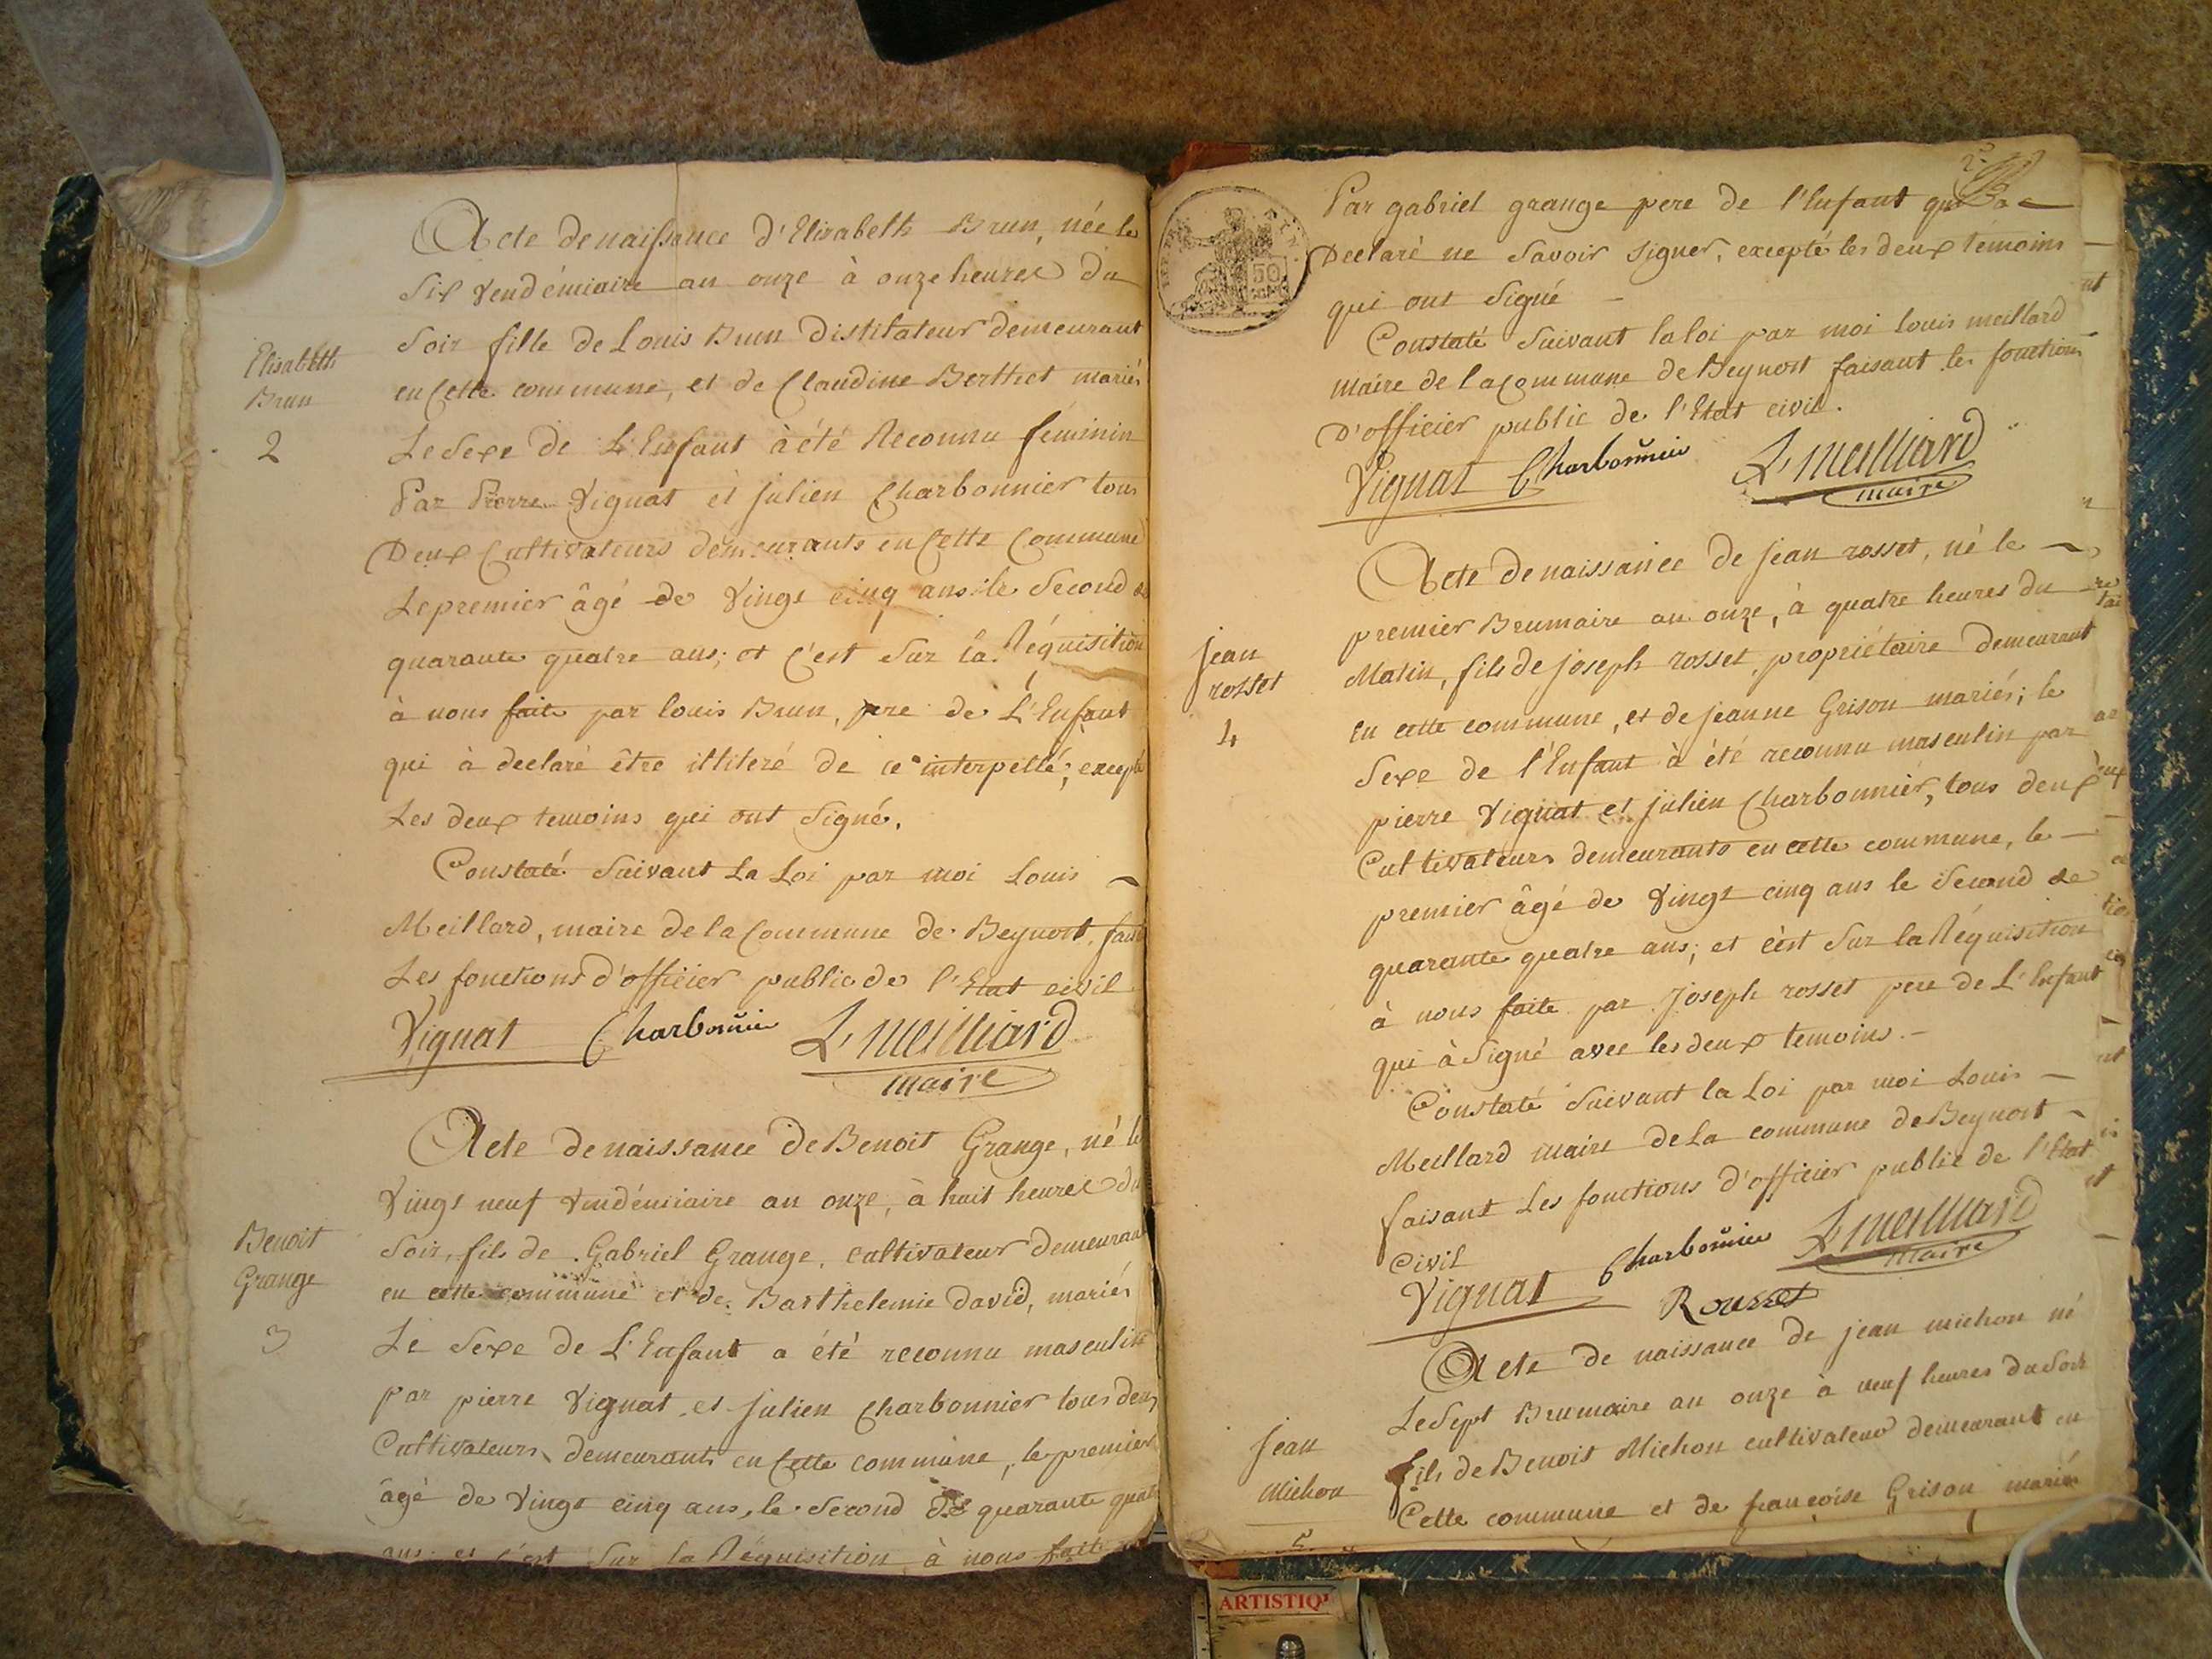 Acte de naissance d'Elisabeth Brun, née le
Six vendémiaire an onze à onze heures du
Soir fille de Louis Brun Distilateur demeurant
en Cette commune, et de Claudine Berthet mariés
Le Sexe de L'Enfant à été Reconnu féminin
Par Pierre Vignat et julien Charbonnier tous
Deux Cultivateurs demeurants en Cette Commune
Le premier âgé de Vingt cinq ans le Second de
quarante quatre ans; et C'est Sur la Réquisition
à nous faite par louis Brun, pere de L'Enfant
qui à declaré être illiteré de ce interpellé; excepté
Les deux temoins qui ont Signé.
Constaté Suivant La Loi par moi Louis
Meillard, maire de la Commune de Beynost, fais
Les fonctions d'officier public de l'Etat civil
Vignat Charbonnier L. Meilliard
maire
Elisabeth
Brun
2
Acte de naissance de Benoit Grange, né le
Vingt neuf vendémiaire an onze, à huit heures du
Soir, fils de Gabriel Grange, cultivateur demeurant
en cette commune et de Barthelemie david, mariés
Le Sexe de L'Enfant a été reconnu masculin
par pierre Vignat et julien Charbonnier tous deux
Cultivateurs demeurants en Cette commune, le premier
âgé de Vingt cinq ans, le Second de quarante quatre
ans; et c'est Sur la Réquisition à nous faite
Benoit
Grange
3
Par gabriel grange pere de l'Enfant qui a
Declaré ne Savoir Signer, excepté les deux temoins
qui ont Signé
Constaté Suivant la loi par moi louis meillard
maire de la Commune de Beynost faisant les fonctions
D'officier public de l'Etat civil.
Vignat Charbonnier L. Meilliard
maire
50
Acte de naissance de jean rosset, né le
premier Brumaire an onze, à quatre heures du
Matin, fils de joseph rosset, propriétaire demeurant
en cette commune, et de jeanne Grison mariés; le
Sexe de l'Enfant à été reconnu masculin par
pierre Vignat et julien Charbonnier, tous deux
Cultivateurs demeurants en cette commune, le
premier âgé de Vingt cinq ans le Second de
quarante quatre ans; et c'est Sur la Réquisition
à nous faite par Joseph rosset pere de L'Enfant
qui à Signé avec les deux temoins.
Constaté Suivant la Loi par moi Louis
Meillard maire de La commune de Beynost
faisant Les fonctions d'officier public de l'Etat
Civil
Vignat Charbonnier L. Meilliard
maire
Rousset
jean
rosset
4
Acte de naissance de jean michon né
Le Sept Brumaire an onze à neuf heures du Soir
fils de Benoit Michon cultivateur demeurant en
Cette commune et de françoise Grison mariés
jean
Michon
5
ARTISTIQ